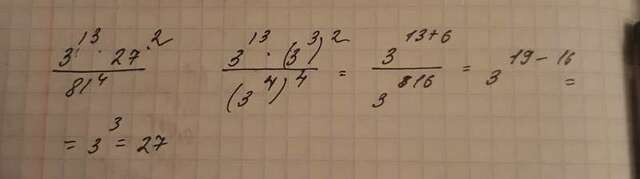 3¹³ · 27² / 81⁴ 3¹³ · (3³)² / (3⁴)⁴ = 3¹³⁺⁶ / 3¹⁶ = 3¹⁹⁻¹⁶ =
= 3³ = 27